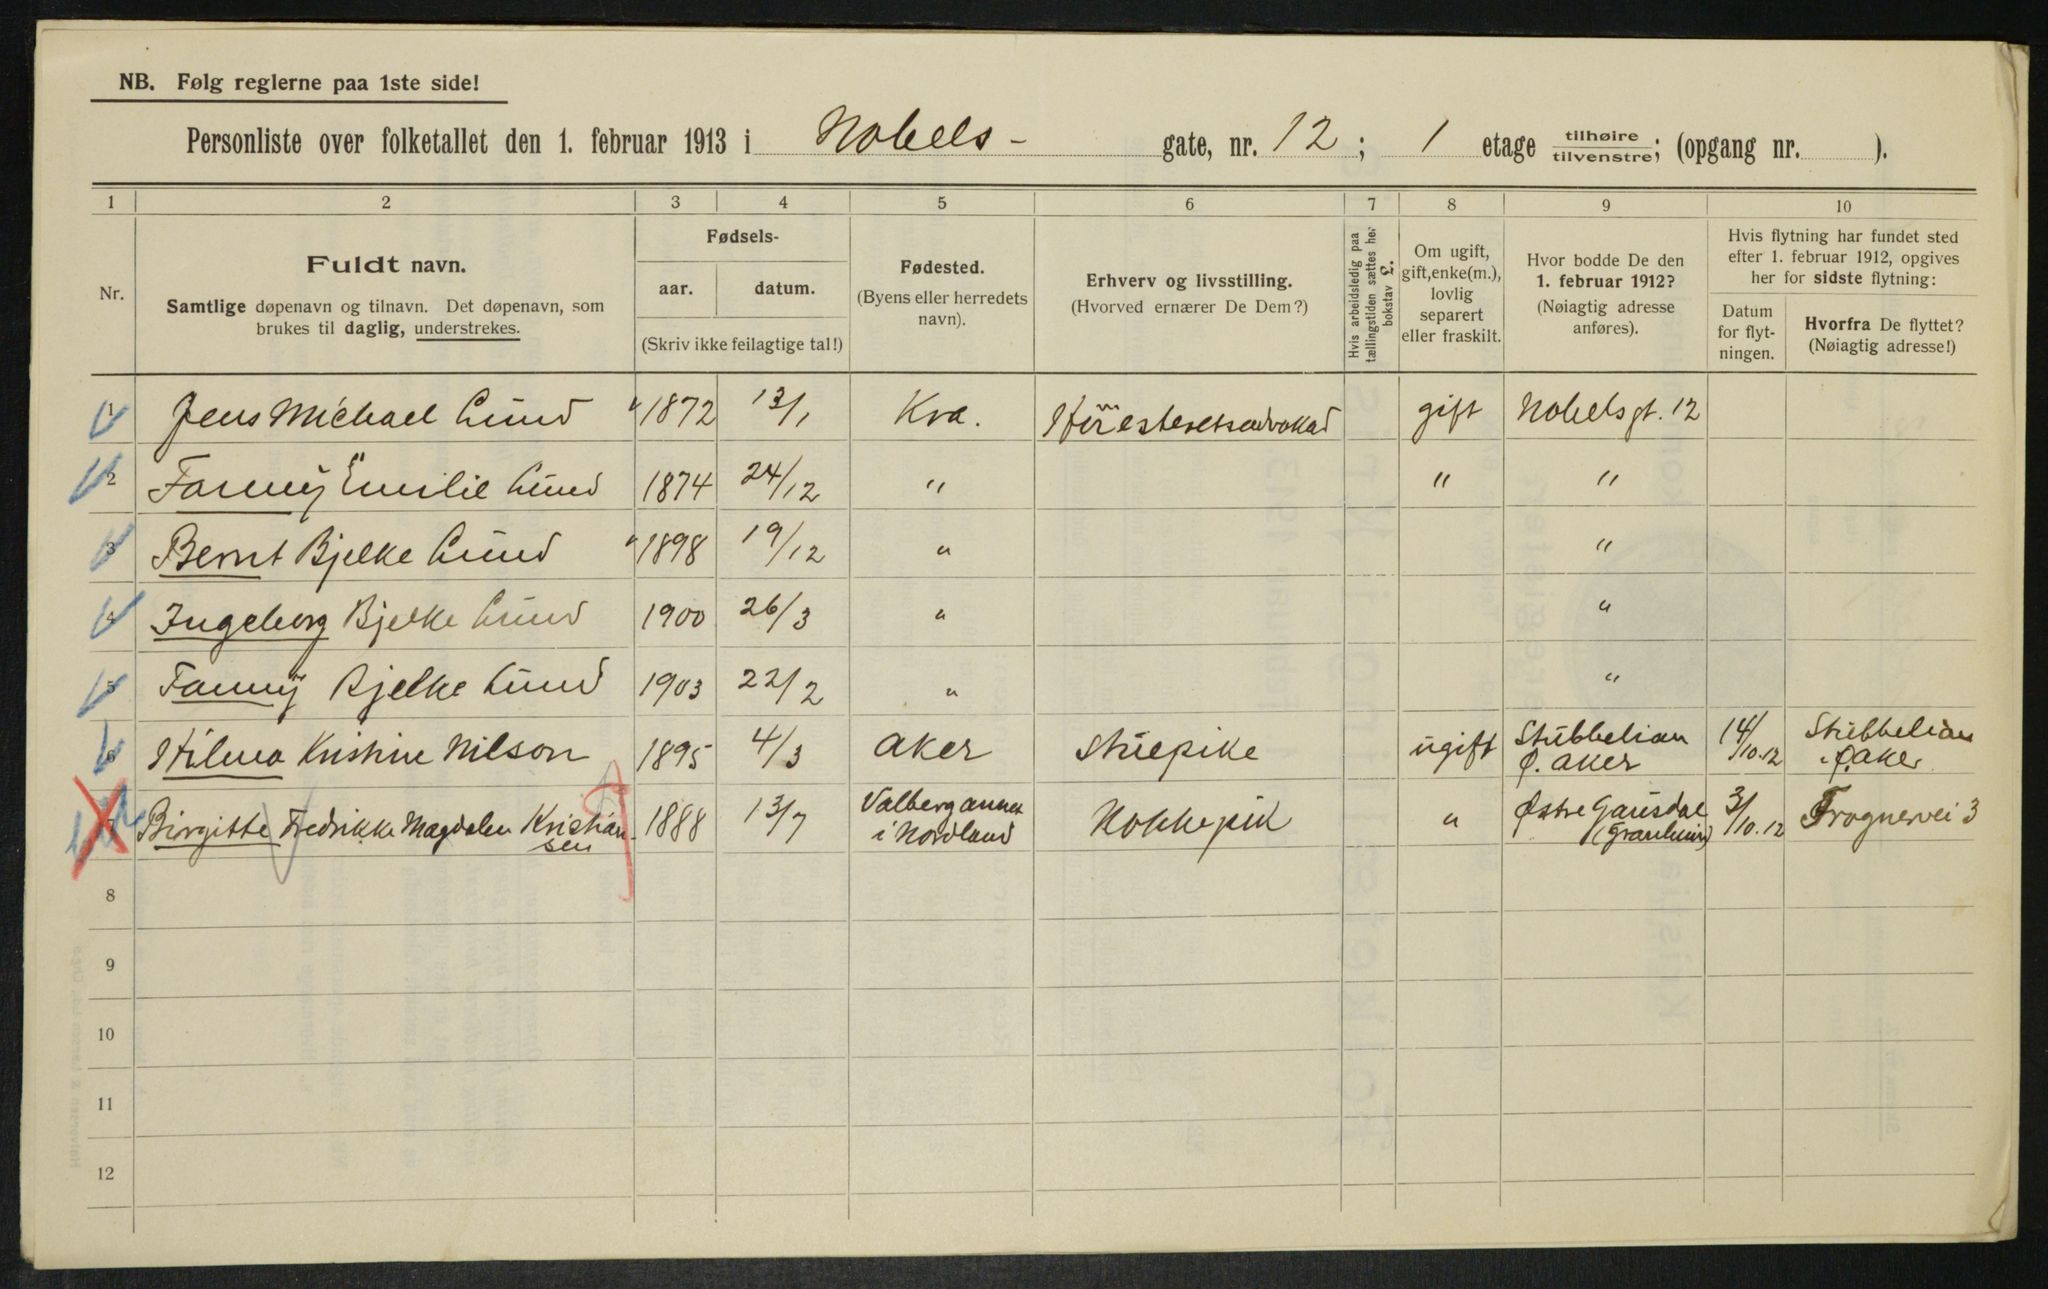 NB. Følg reglerne paa 1ste side!
Personliste over folketallet den 1. februar 1913 i Nobels- gate, nr. 12; 1 etage tilhøire/tilvenstre; (opgang nr. ).
1 2 3 4 5 6 7 8 9 10
Nr.
Fuldt navn.
Samtlige døpenavn og tilnavn. Det døpenavn, som
brukes til daglig, understrekes.
Fødsels-
aar. datum.
(Skriv ikke feilagtige tal!)
Fødested.
(Byens eller herredets
navn).
Erhverv og livsstilling.
(Hvorved ernærer De Dem?)
Hvis arbeidsledig paa
tællingstiden sættes her
bokstav L.
Om ugift,
gift, enke(m.),
lovlig
separert
eller fraskilt.
Hvor bodde De den
1. februar 1912?
(Nøiagtig adresse
anføres).
Hvis flytning har fundet sted
efter 1. februar 1912, opgives
her for sidste flytning:
Datum
for flyt-
ningen.
Hvorfra De flyttet?
(Nøiagtig adresse!)
1 Jens Michael Lund 1872 13/1 Kra. Høiesteretsadvokat gift Nobelsgt. 12
2 Fanny Emilie Lund 1874 24/12 " " "
3 Bernt Bjelke Lund 1898 19/12 " "
4 Ingeborg Bjelke Lund 1900 26/3 " "
5 Fanny Bjelke Lund 1903 22/2 " "
6 Hilma Kristine Nilson 1895 4/3 Aker Stuepike ugift Stubbelian Ø. Aker 14/10.12 Stubbelian Ø. Aker
7 Birgitte Fredrikke Magdalen Kristian-
sen 1888 13/7 Valberg annex i Nordland Kokkepik " Østre Gausdal 3/10.12 Frognervei 3
8
9
10
11
12